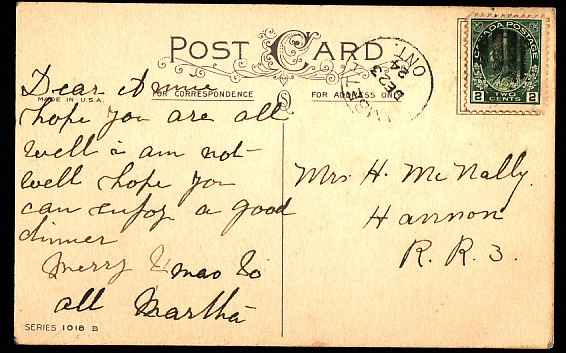 POST CARD
CANADA POSTAGE
2 TWO CENTS 2
DE 23
24
ONT.
MADE IN U.S.A.
FOR CORRESPONDENCE
FOR ADDRESS ONLY
Dear
hope you are all
well i am not
well hope you
can enjoy a good
dinner
Merry Xmas to
all Martha
Mrs H. McNally.
Hannon
R. R. 3.
SERIES 1018 B